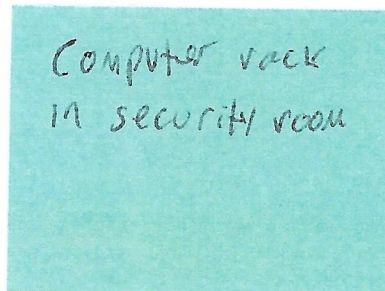 Computer rack
in security room